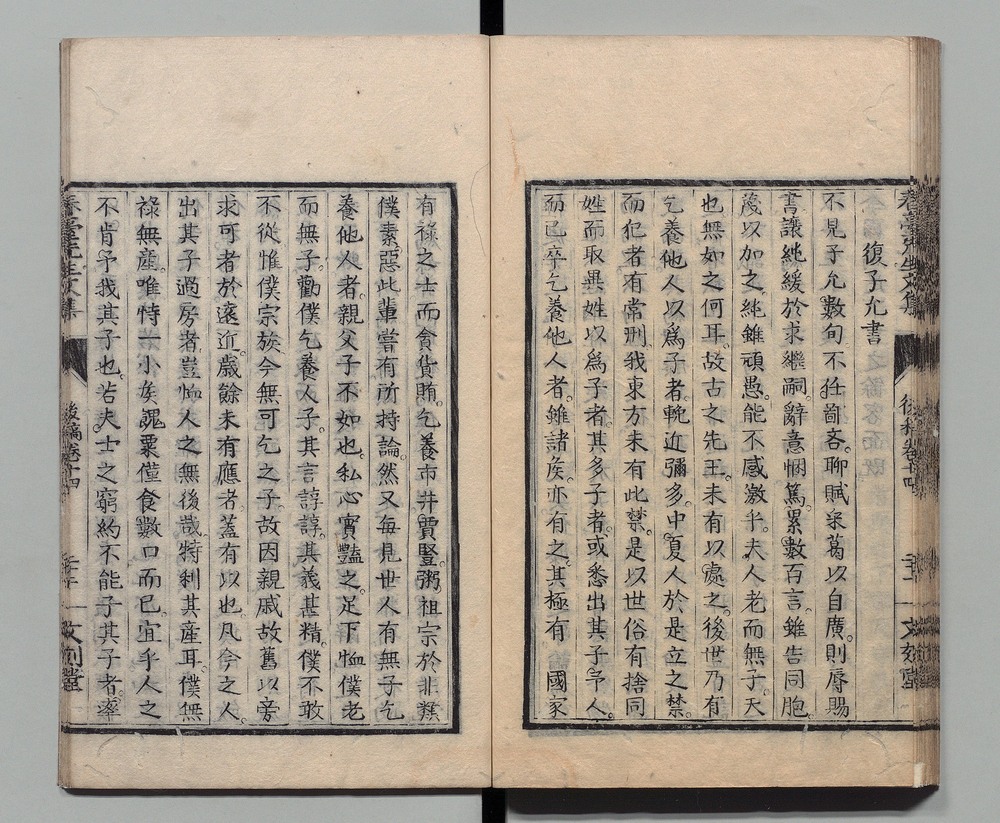 春臺先生文集
後稿卷十四
文刻堂
復子允書
不見子允數旬不任鄙吝聊賦采葛以自廣則辱賜
書讓純緩於求繼嗣辭意悃篤累數百言雖告同胞
蔑以加之純雖頑愚能不感激乎夫人老而無子天
也無如之何耳故古之先王未有以處之後世乃有
乞養他人以爲子者輓近彌多中夏人於是立之禁
而犯者有常刑我東方未有此禁是以世俗有捨同
姓而取異姓以爲子者其多子者或悉出其子予人
而已卒乞養他人者雖諸矦亦有之其極有 國家
有祿之士而貪貨賄乞養市井賈豎粥祖宗於非類
僕素惡此輩嘗有所持論然又每見世人有無子乞
養他人者親父子不如也私心實豔之足下恤僕老
而無子勸僕乞養人子其言諄諄其義甚精僕不敢
不從惟僕宗族今無可乞之子故因親戚故舊以旁
求可者於遠近歲餘未有應者蓋有以也凡今之人
出其子過房者豈恤人之無後哉特利其產耳僕無
祿無產唯恃一小矦餼粟僅食數口而已宜乎人之
不肯予我其子也若夫士之窮約不能子其子者率
春臺先生文集
後稿卷十四
文刻堂